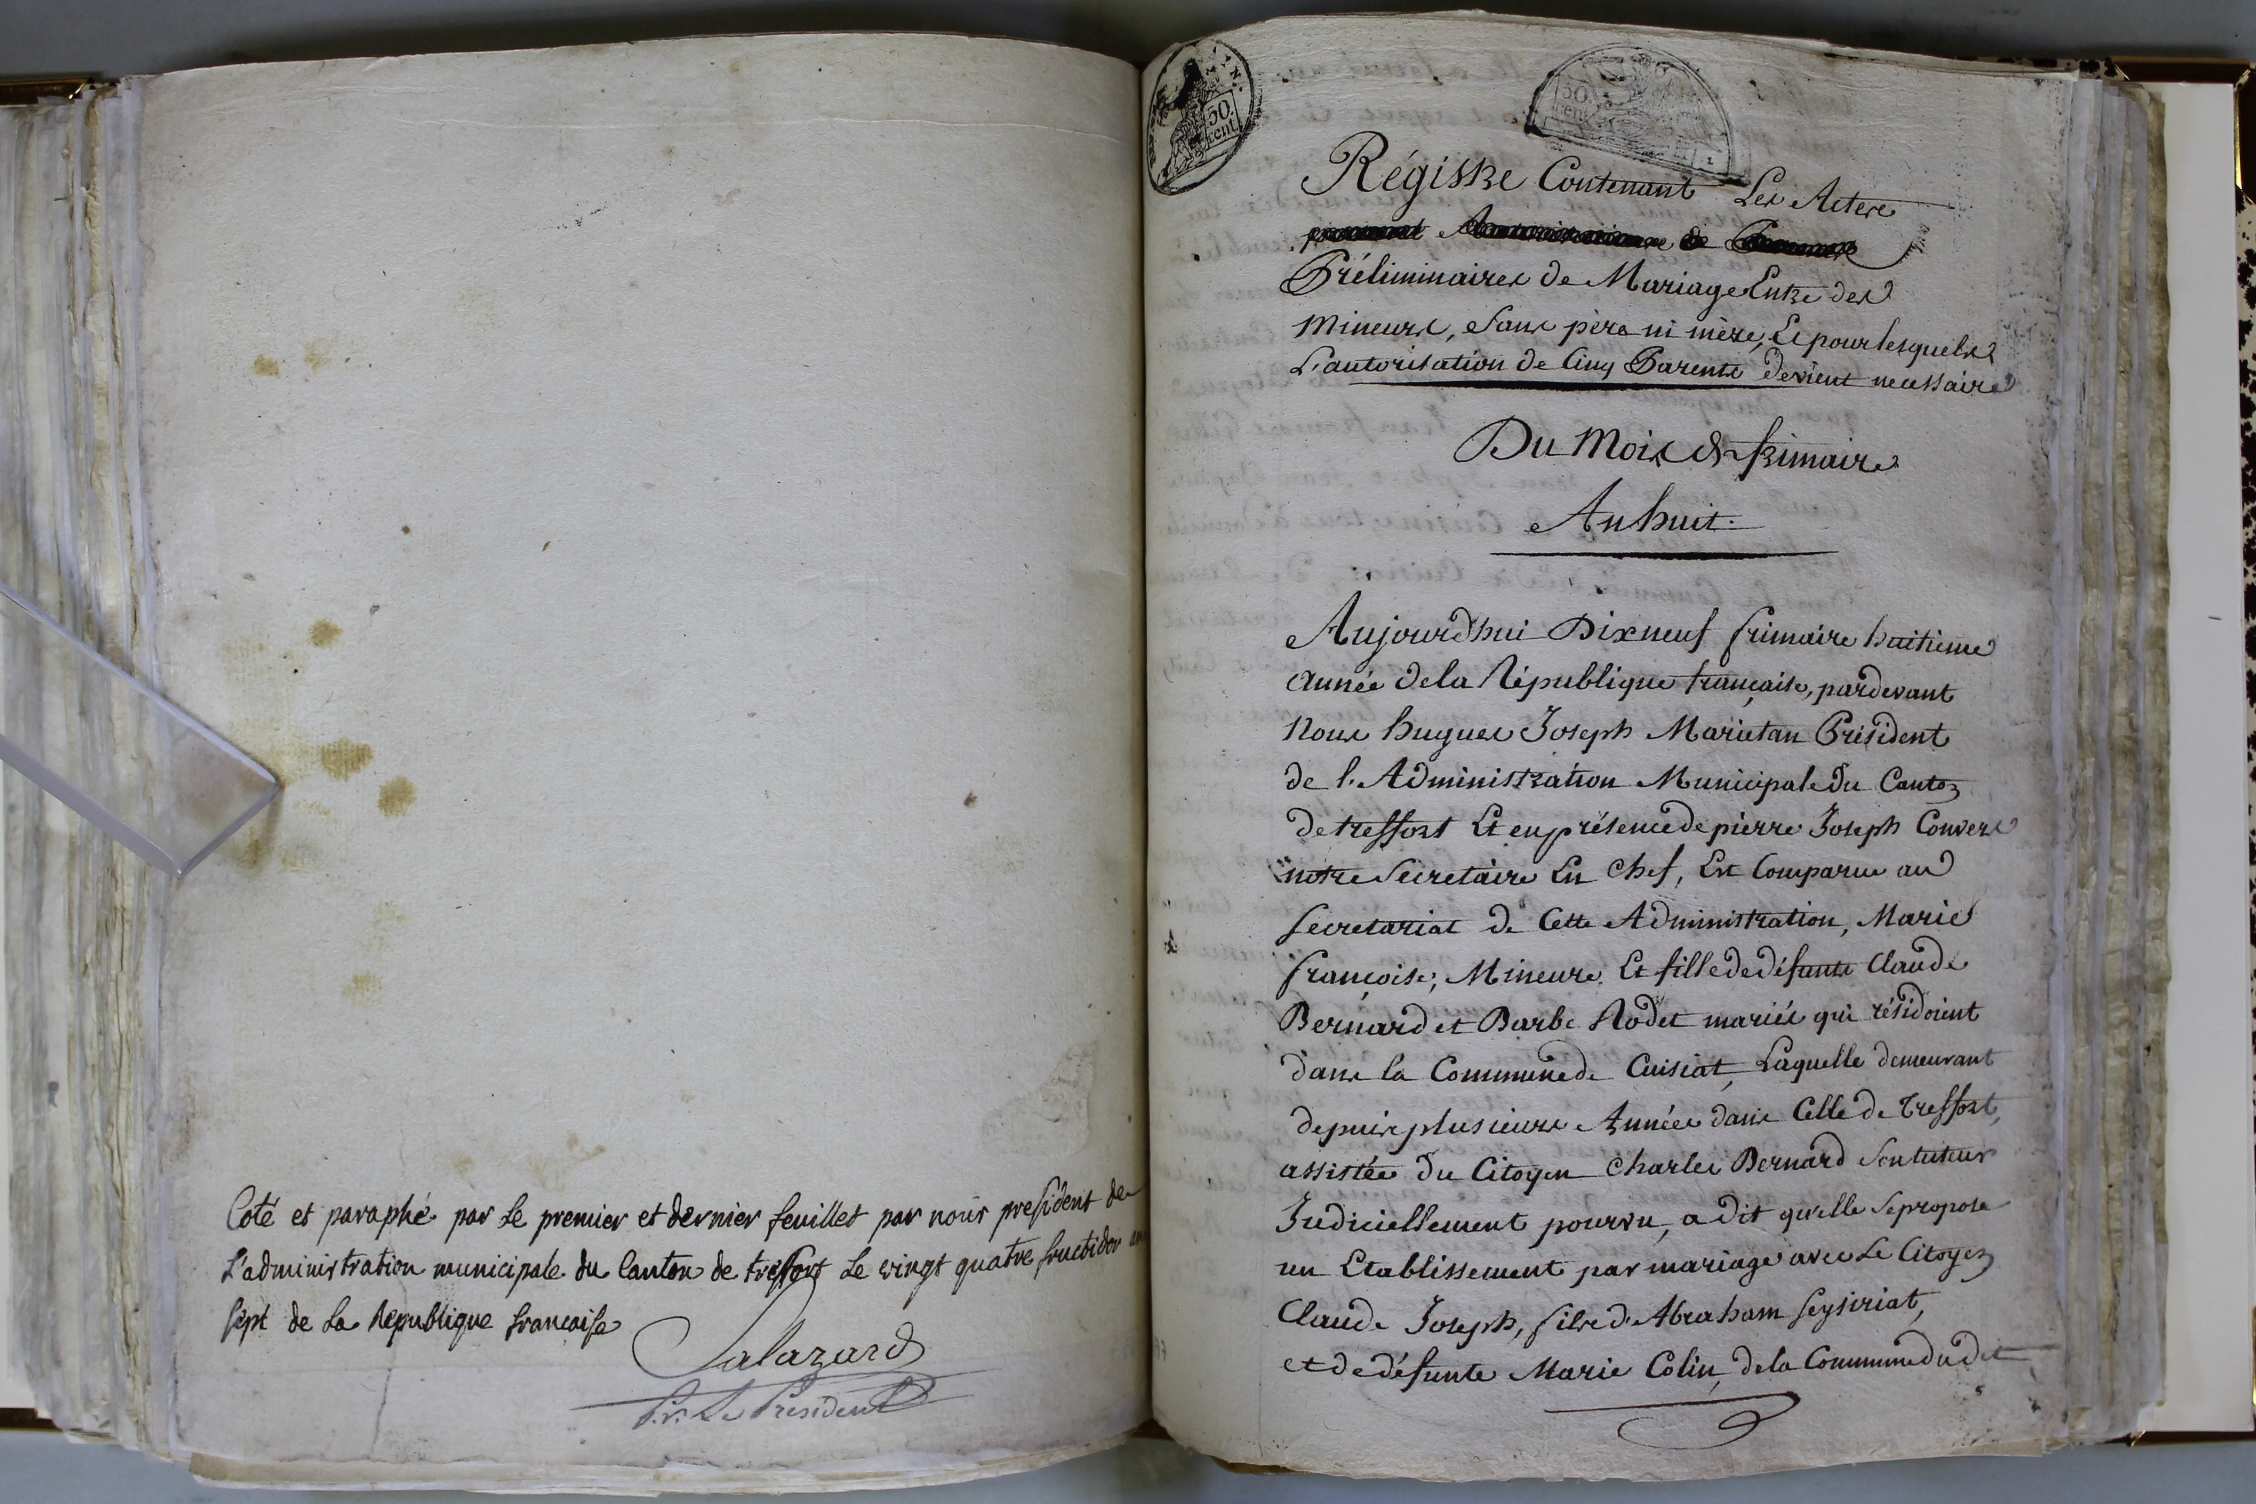 Coté et paraphé par le premier et dernier feuillet par nous president de
L'administration municipale du Canton de treffort le vingt quatre fructidor an
sept de la Republique francoise
Salazard
P.r Le President
50.
cent.
50
cent
Régistre Contenant Les Actes
de
Préliminaires de Mariage Entre des
Mineurs, Sans père ni mère, Et pour lesquels
L'autorisation de Cinq Parents devient necessaire
Du Mois de frimaire
An huit.
Aujourd'hui Dixneuf frimaire huitieme
année de la République française, pardevant
Nous hugues Joseph Marietan Président
de l'Administration Municipale du Canton
de treffort Et en présence de pierre Joseph Convers
notre Sécretaire En Chef, Est Comparue au
Secretariat de Cette Administration, Marie
françoise, Mineure Et fille de défunts Claude
Bernard et Barbe Rodet mariés qui résidoient
dans la Commune de Cuisiat, Laquelle demeurant
depuis plusieurs Années dans Celle de Treffort,
assistée du Citoyen Charles Bernard Son tuteur
Judiciellement pourvu, a dit qu'elle se propose
un Etablissement par mariage avec Le Citoyen
Claude Joseph, fils d'Abraham Seysiriat,
et de défunte Marie Colin, de la Commune dudit